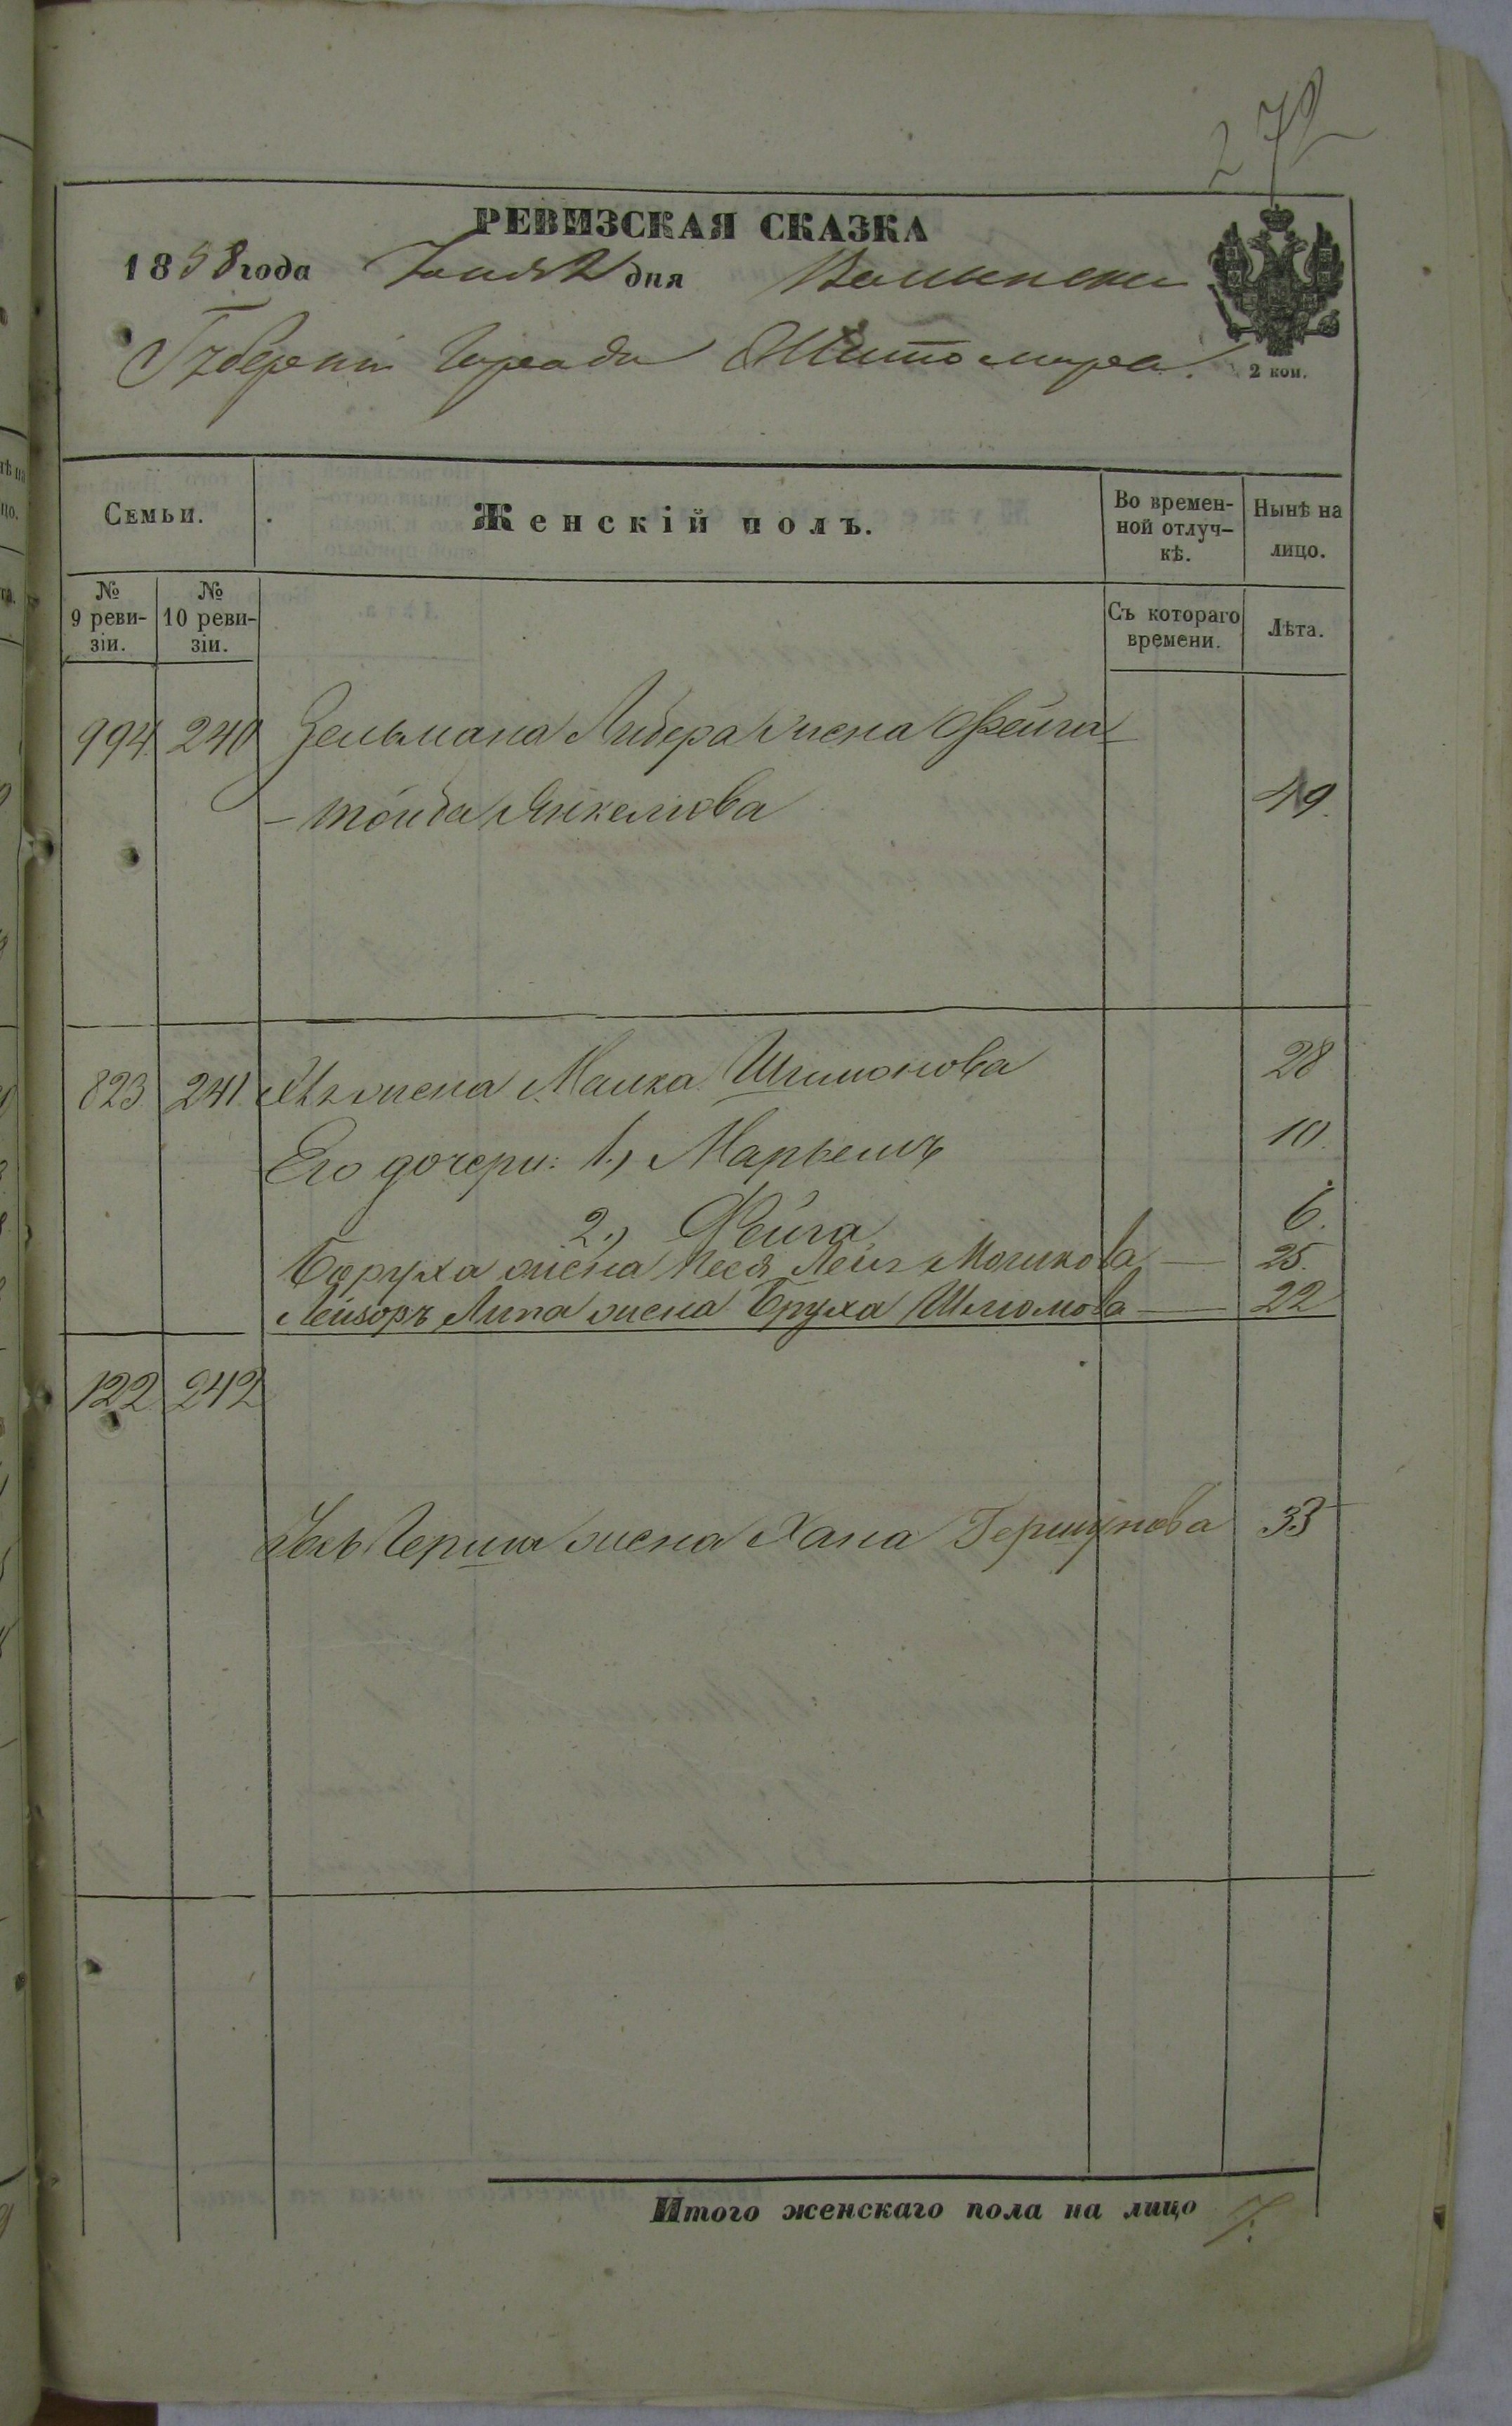 272
РЕВИЗСКАЯ СКАЗКА
1858 года Іюня 2 дня Волынской
Губерніи Города Житомира.
2 коп.
Семьи.
Женскій полъ.
Во времен-
ной отлуч-
кѣ.
Нынѣ на
лицо.
№
9 реви-
зіи.
№
10 реви-
зіи.
Съ котораго
времени.
Лѣта.
994 240 Зельмана Либера жена Фейга
-Тойба Янкелiова 49.
823 241 жена Малка Шлимонова 28
Его дочери: 1.) Марьемъ 10.
2.) Фейга 6.
Боруха жена Песя Лея Мошкова — 25.
Лейзоръ Липа жена Бруха Шлиомова — 22
122 242
Герша жена Хана Гершунова 33
Итого женскаго пола на лицо 7.